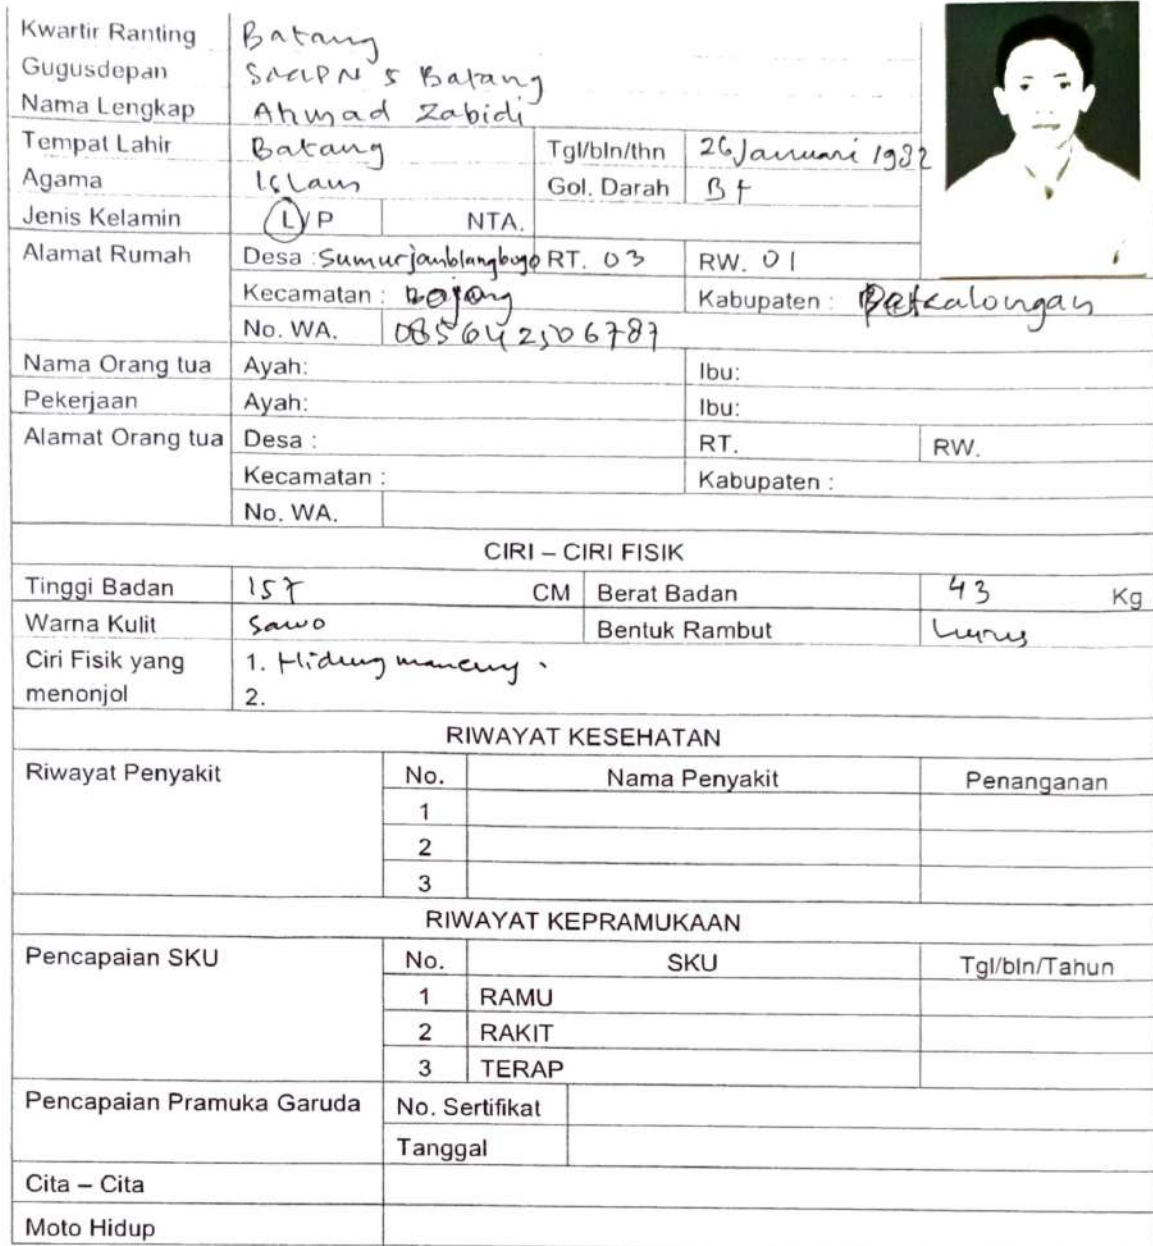 Kwartir Ranting Batang
Gugusdepan SMPN 5 Batang
Nama Lengkap Ahmad Zabidi
Tempat Lahir Batang Tgl/bln/thn 26 Januari 1982
Agama Islam Gol. Darah B+
Jenis Kelamin L/P NTA.
Alamat Rumah Desa : Sumurjomblangbogo RT. 03 RW. 01
Kecamatan : Bojong Kabupaten : Pekalongan
No. WA. 085642506787
Nama Orang tua Ayah: Ibu:
Pekerjaan Ayah: Ibu:
Alamat Orang tua Desa : RT. RW.
Kecamatan : Kabupaten :
No. WA.
CIRI – CIRI FISIK
Tinggi Badan 157 CM Berat Badan 43 Kg
Warna Kulit Sawo Bentuk Rambut Lurus
Ciri Fisik yang 1. Hidung mancung.
menonjol 2.
RIWAYAT KESEHATAN
Riwayat Penyakit No. Nama Penyakit Penanganan
1
2
3
RIWAYAT KEPRAMUKAAN
Pencapaian SKU No. SKU Tgl/bln/Tahun
1 RAMU
2 RAKIT
3 TERAP
Pencapaian Pramuka Garuda No. Sertifikat
Tanggal
Cita – Cita
Moto Hidup